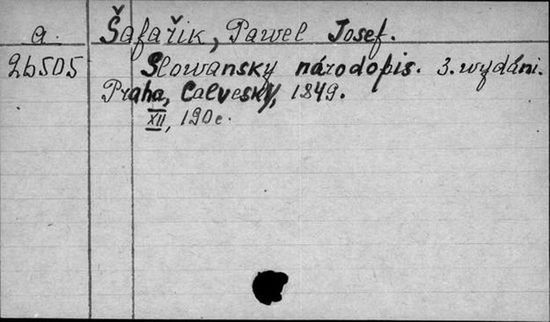 a. Šafařik, Pawel Josef.
26505 Slowansky národopis. 3. wydáni.
Praha, Calvesky, 1849.
XII, 190 c.